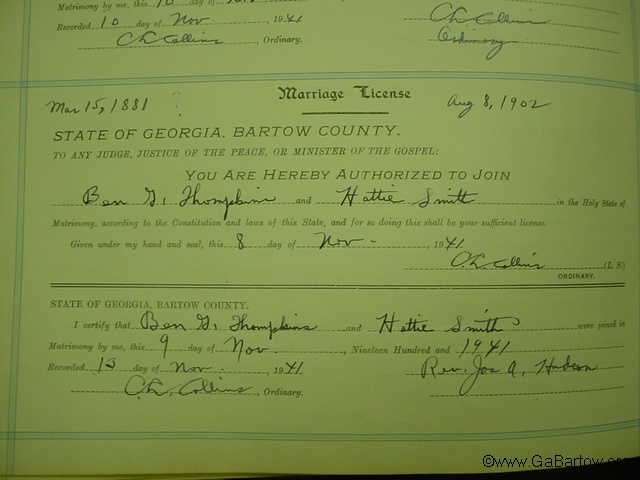 Matrimony by me, this 10 day of
Recorded 10 day of Nov. , 1941
C. L. Collins
C. L. Collins , Ordinary.
Ordinary
Marriage License
Mar 15, 1881
Aug 8, 1902
STATE OF GEORGIA, BARTOW COUNTY.
TO ANY JUDGE, JUSTICE OF THE PEACE, OR MINISTER OF THE GOSPEL:
YOU ARE HEREBY AUTHORIZED TO JOIN
Ben G. Thompkins and Hattie Smith in the Holy State of
Matrimony, according to the Constitution and laws of this State, and for so doing this shall be your sufficient license.
Given under my hand and seal, this 8 day of Nov. , 1941
C. L. Collins (L. S.)
ORDINARY.
STATE OF GEORGIA, BARTOW COUNTY.
I certify that Ben G. Thompkins and Hattie Smith were joined in
Matrimony by me, this 9 day of Nov. , Nineteen Hundred and 1941
Recorded 13 day of Nov. , 1941 Rev. Jos A. Hudson
C. L. Collins , Ordinary.
©www.GaBartow.org